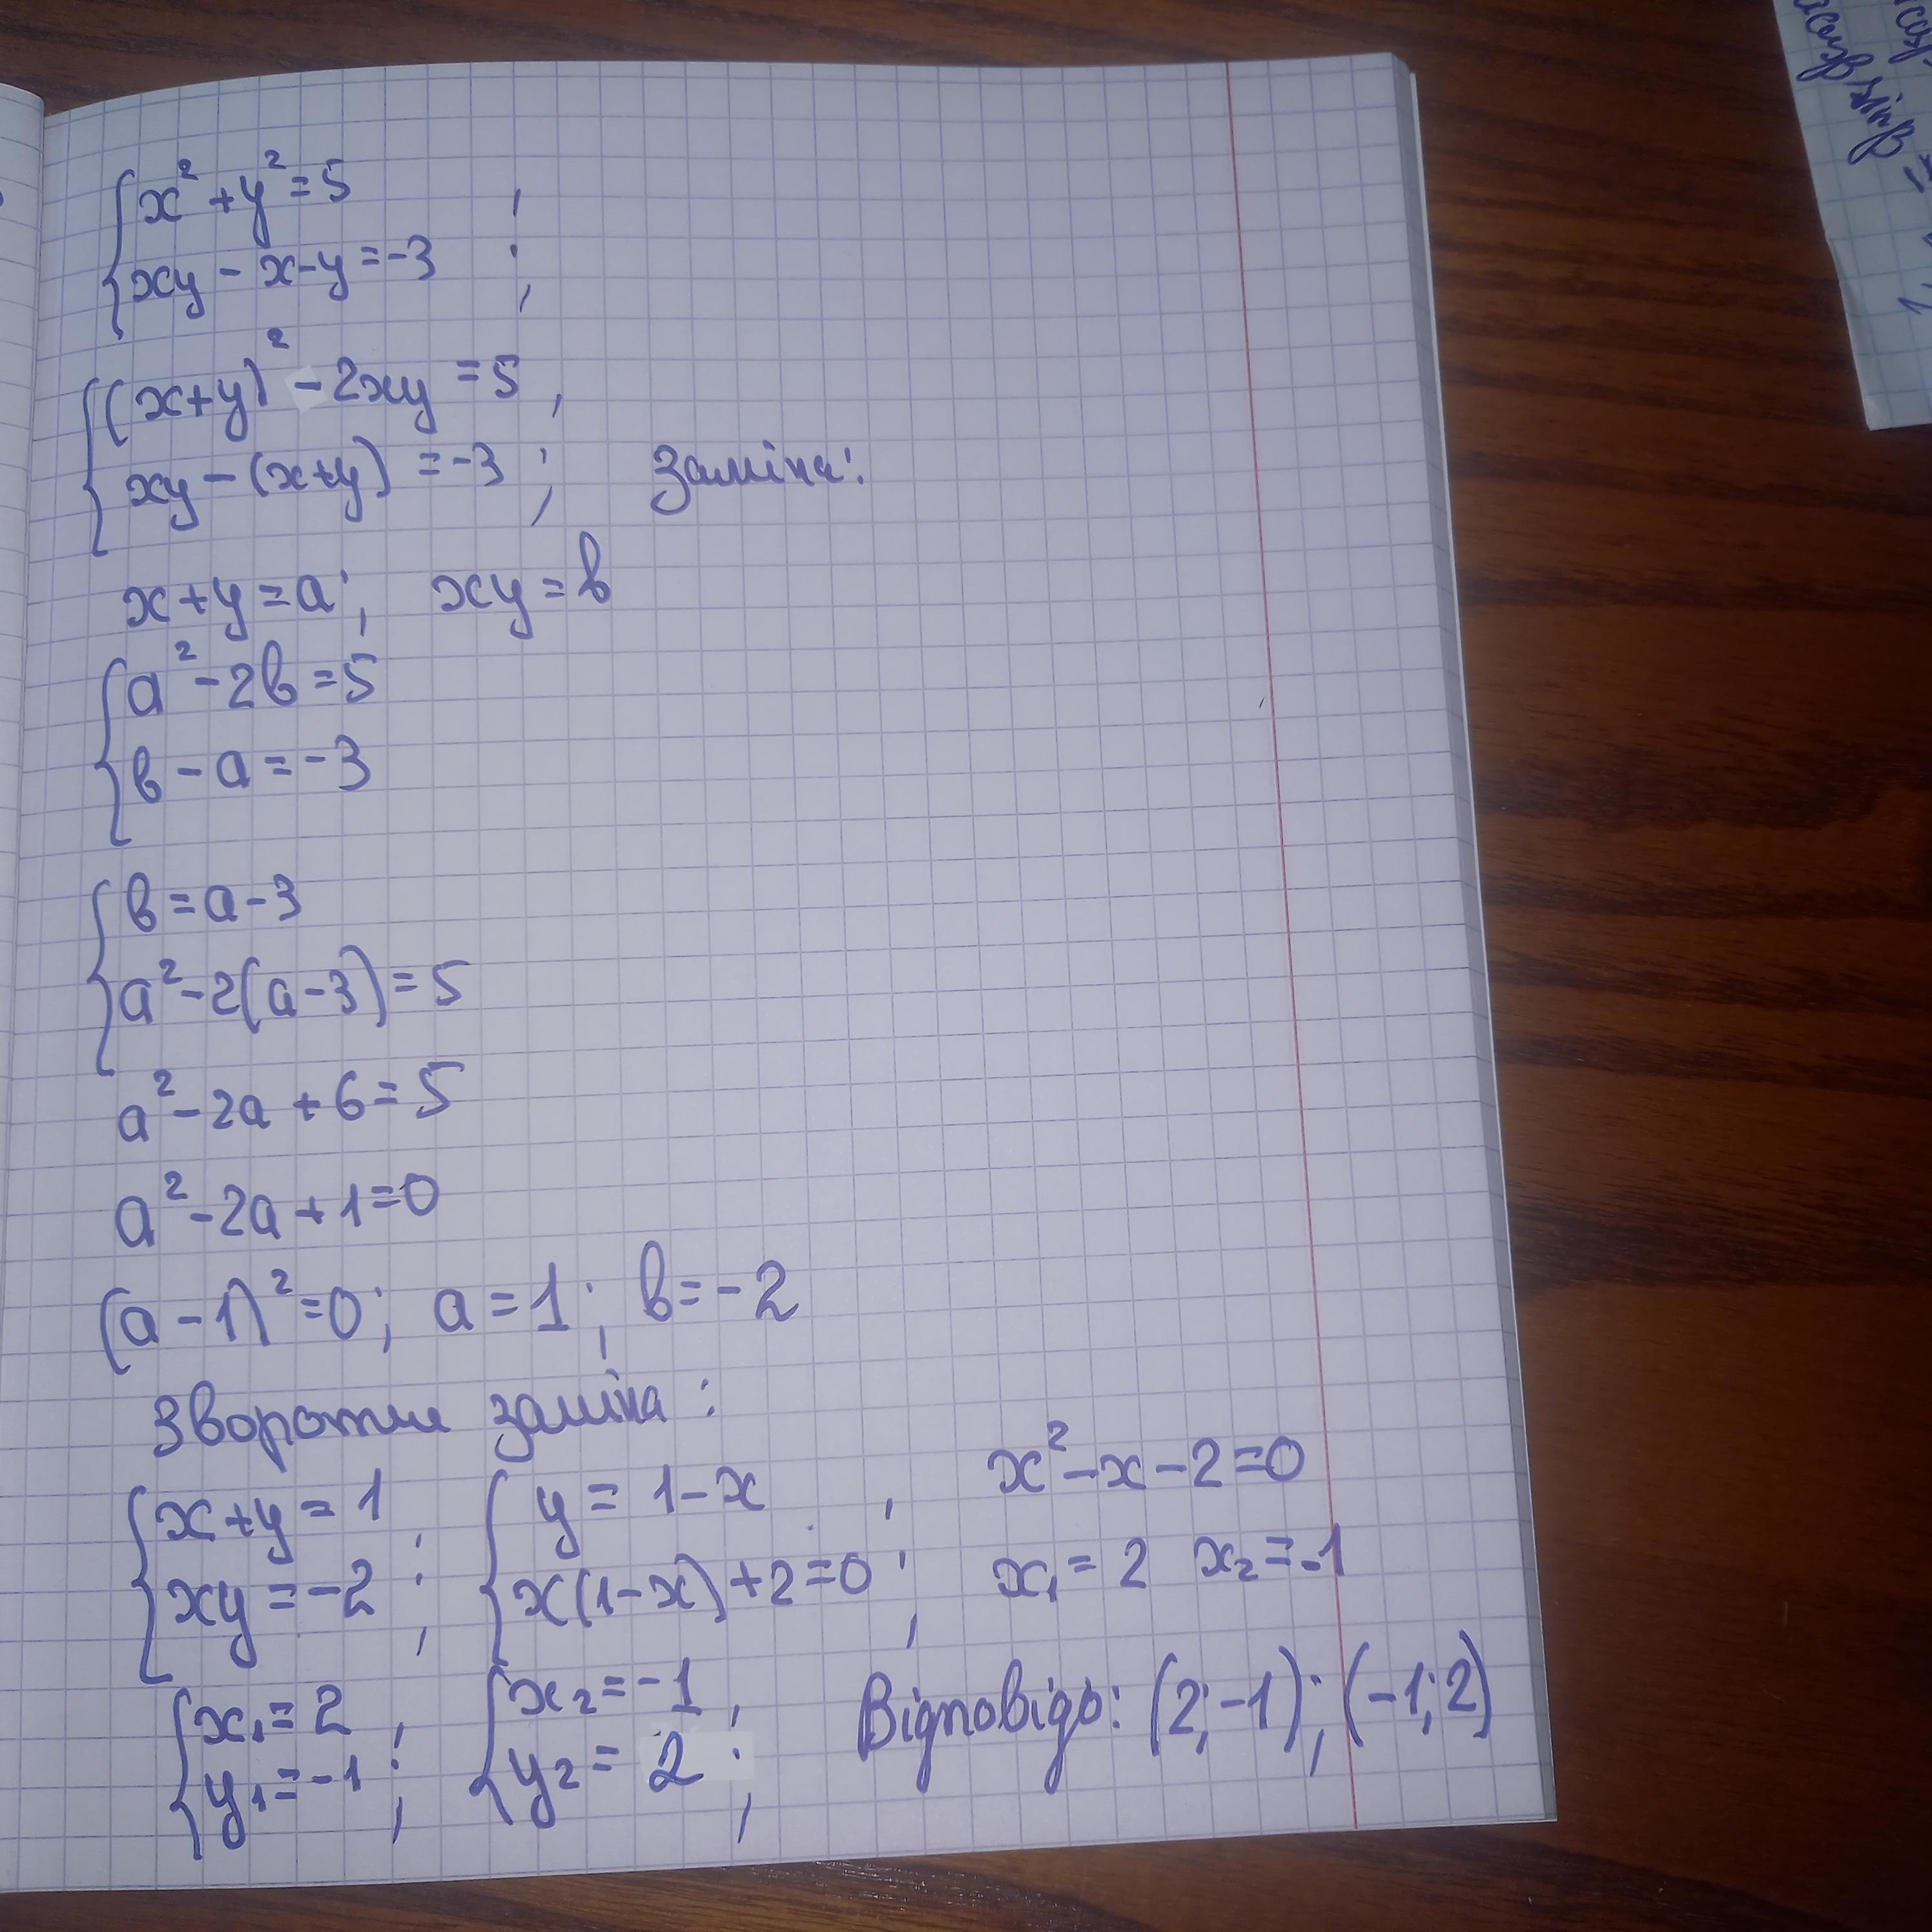 x² + y² = 5 ,
xy - x - y = -3 ;
(x+y)² - 2xy = 5 ,
xy - (x+y) = -3 ; Заміна:
x + y = a ; xy = b
a² - 2b = 5
b - a = -3
b = a - 3
a² - 2(a - 3) = 5
a² - 2a + 6 = 5
a² - 2a + 1 = 0
(a - 1)² = 0 ; a = 1 ; b = -2
Зворотня заміна :
x + y = 1 y = 1 - x , x² - x - 2 = 0
xy = -2 ; x(1 - x) + 2 = 0 ; x₁ = 2 x₂ = -1
x₁ = 2 , x₂ = -1 , Відповідь: (2; -1) ; (-1; 2)
y₁ = -1 ; y₂ = 2 ;